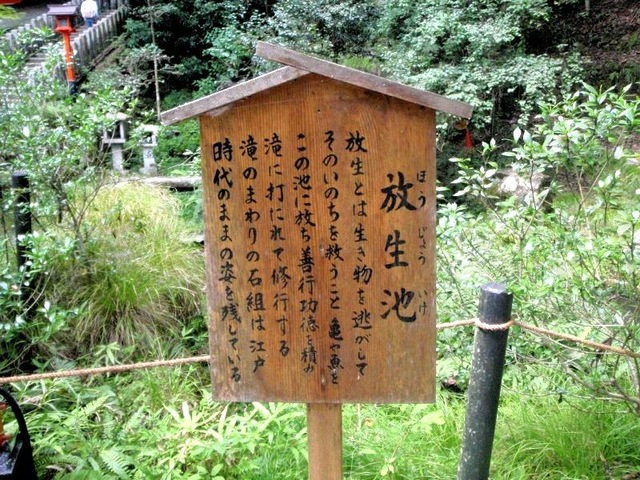 放生池
ほうじょういけ
放生とは生き物を逃がして
そのいのちを救うこと 亀や魚を
この池に放ち善行功徳を積み
滝に打たれて修行する
滝のまわりの石組は江戸
時代のままの姿を残している